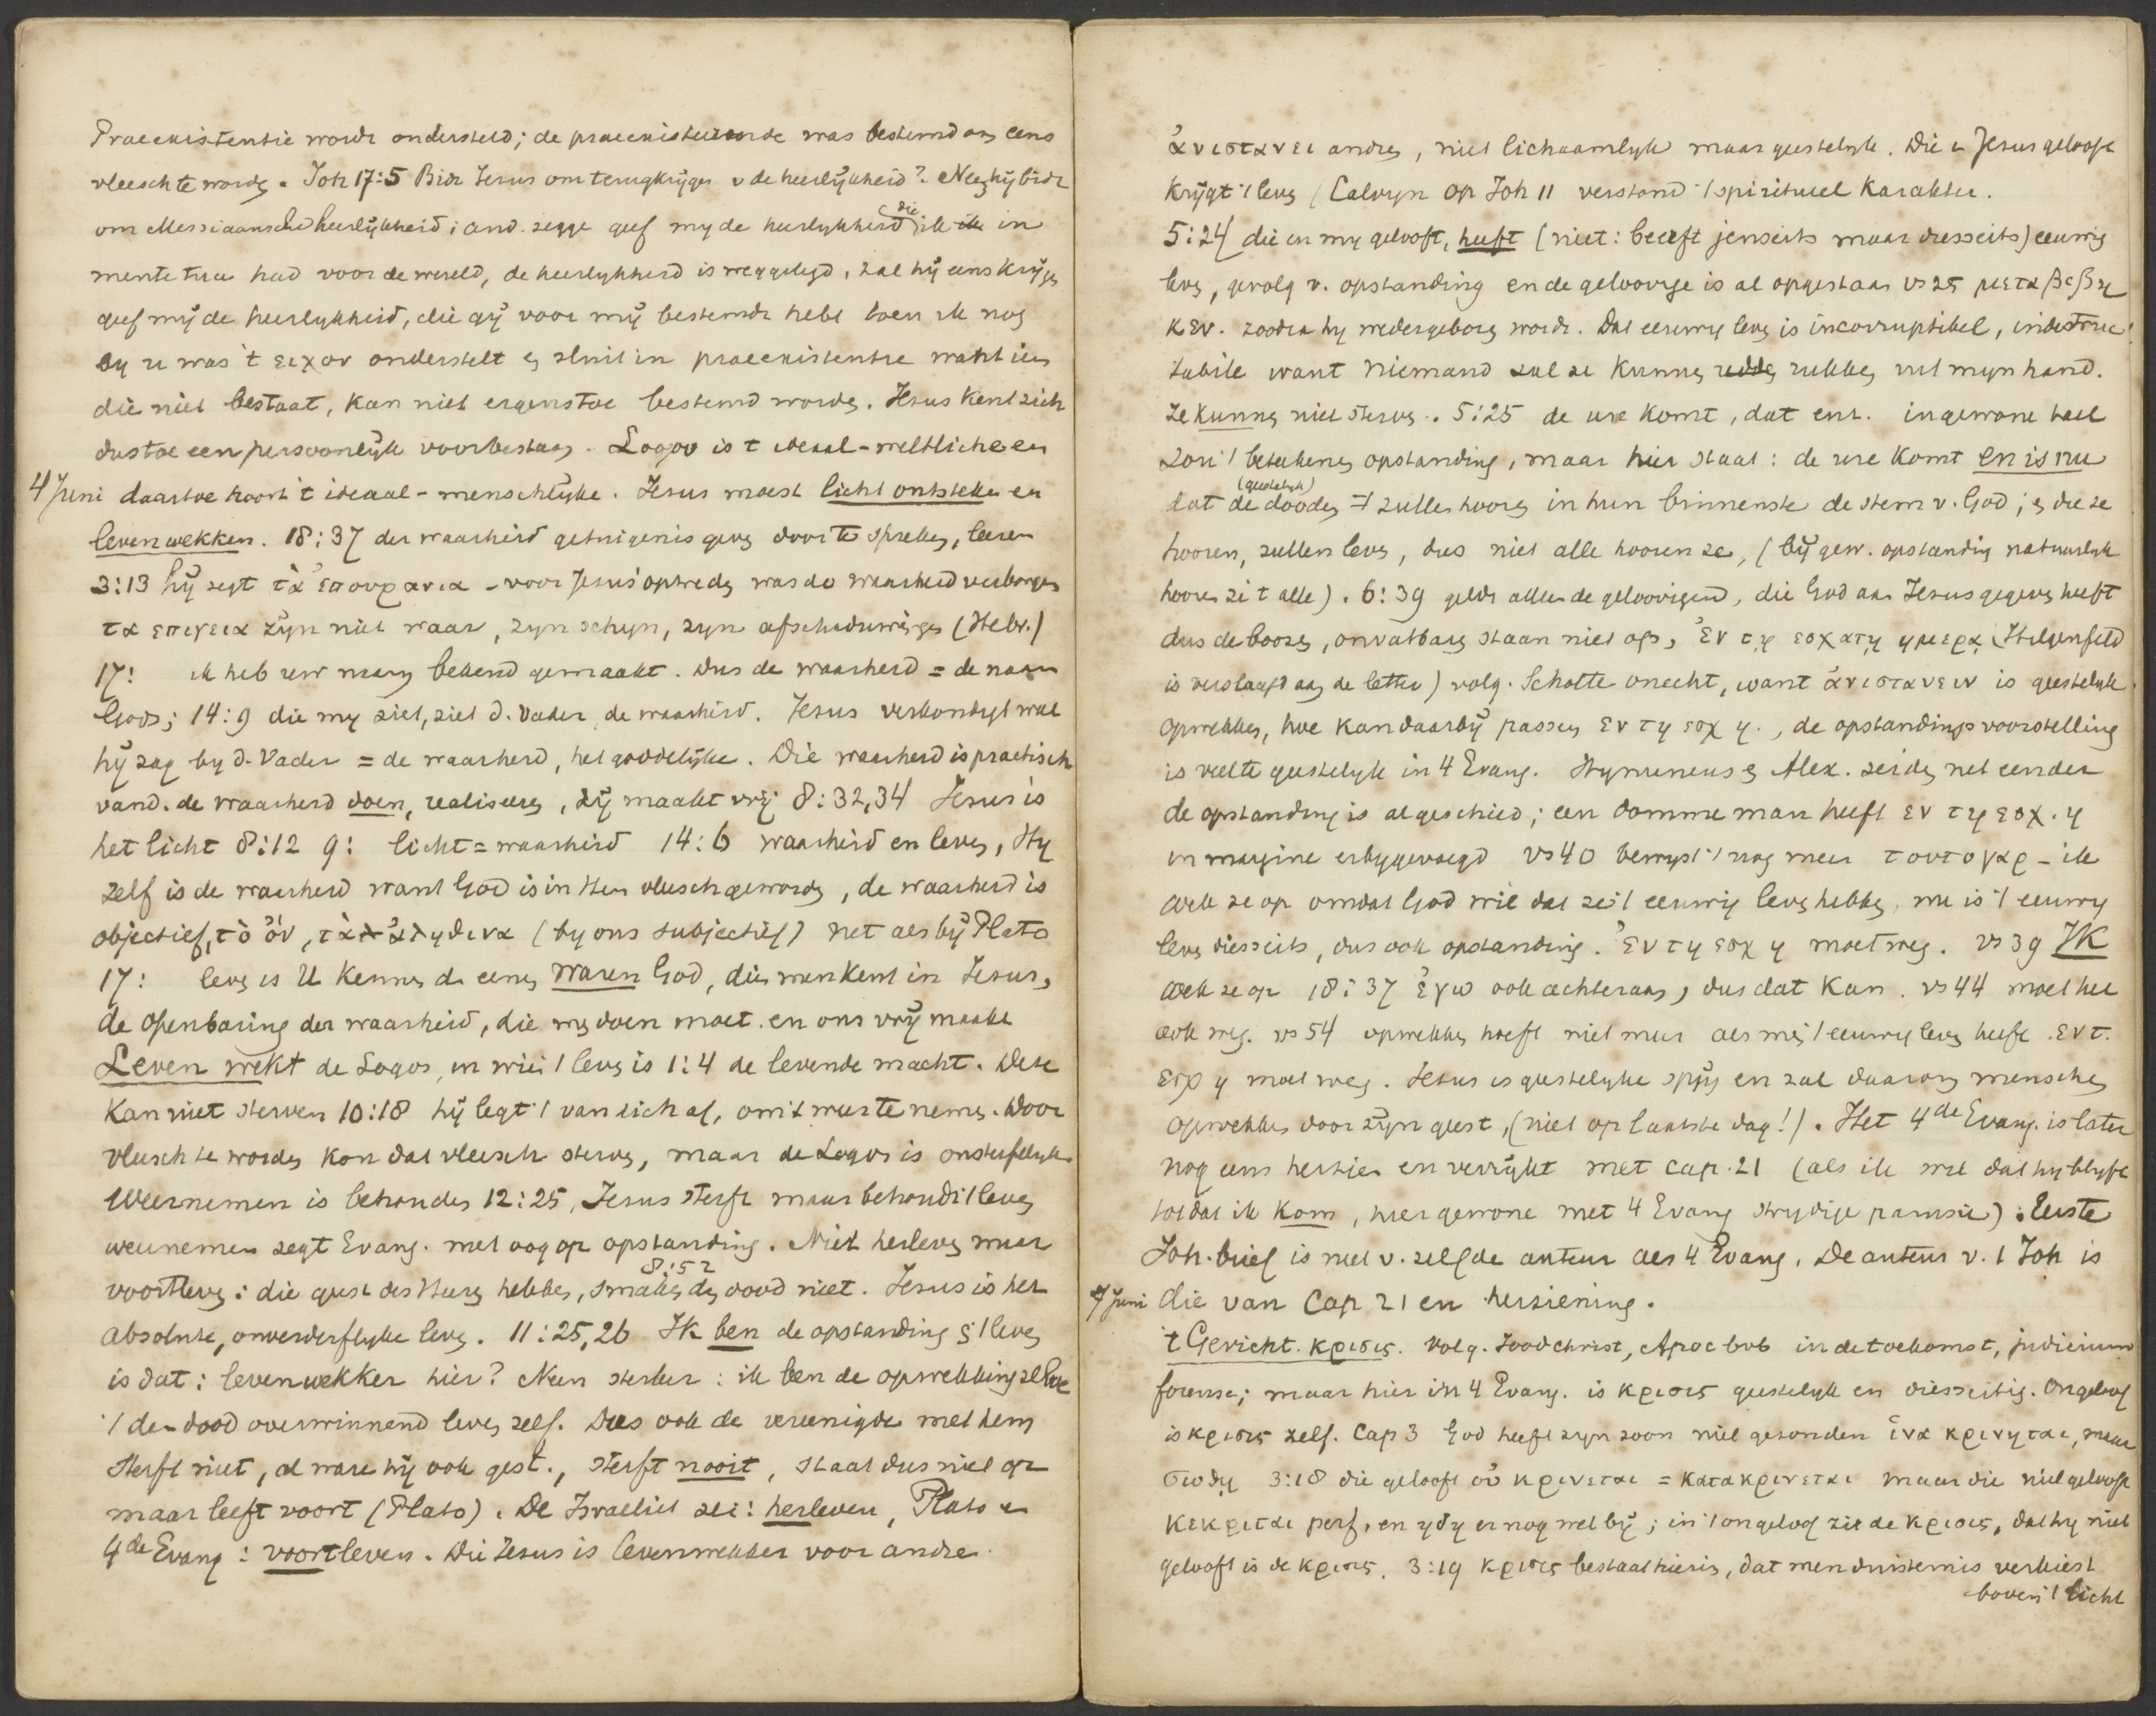 Praeexistentie wordt ondersteld; de praeexisteerende was bestemd om eens
vleesch te worden. Joh 17:5 Bidt Jesus om terugkrijgen v de heerlijkheid? Neen, hij bidt
om Messiaansche heerlijkheid; and. zeggen geef my de heerlykheid die ik in
mente tua had voor de wereld, de heerlykheid is weggelegd, zal hij eens krijgen
geef mij de heerlykheid, die gij voor mij bestemd hebt toen ik nog
by u was 't ειχον onderstelt en sluit in praeexistentie want iets
die niet bestaat, kan niet ergens toe bestemd worden. Jesus kent zich
dus toe een persoonlijk voorbestaan. Logos is 't ideaal-weltliche en
4 Juni daartoe hoort 't ideaal-menschlijke. Jesus moest licht ontsteken en
leven wekken. 18:37 der waarheid getuigenis geven door te spreken, leeren
3:13 hij zegt τὰ ἐπουρανια - voor Jesus' optreden was de waarheid verborgen
τα επιγεια zijn niet waar, zyn schyn, zyn afschaduwingen (Hebr.)
17: ik heb uw naam bekend gemaakt. Dus de waarheid = de naam
Gods; 14:9 die my ziet, ziet d. Vader, de waarheid. Jesus verkondigt wat
hij zag by d. Vader = de waarheid, het goddelijke. Die waarheid is practisch
vand. de waarheid doen, realiseren, zij maakt vrij 8:32,34 Jesus is
het licht 8:12 9: licht = waarheid 14:6 waarheid en leven, Hy
zelf is de waarheid want God is in Hem vleesch geworden, de waarheid is
objectief, τὸ ὄν, τὰ ἀληθινα (by ons subjectief) net als bij Plato
17: leven is U kennen de eenen waren God, dien men kent in Jesus,
de openbaring der waarheid, die men doen moet en ons vrij maakt
Leven wekt de Logos, in wien 't leven is 1:4 de levende macht. Deze
kan niet sterven 10:18 hij legt 't van zich af, om 't weer te nemen. Door
vleesch te worden kon dat vleesch sterven, maar de Logos is onsterfelyk
Weernemen is behouden 12:25, Jesus sterft maar behoudt 't leven
weernemen zegt Evang. met oog op opstanding. Niet herleven maar
voortleven: die geest des Heeren hebben, smaken den dood niet. 8:52 Jesus is het
absolute, onverderflyke leven. 11:25,26 Ik ben de opstanding en 't leven
is dat: levenwekker hier? Neen sterker: ik ben de opwekking zelve
't den dood overwinnend leven zelf. Dus ook de vereenigde met hem
sterft niet, al ware hij ook gest., sterft nooit, staat dus niet op
maar leeft voort (Plato). De Israeliet zei: herleven, Plato en
4de Evang: voortleven. Die Jesus is levenwekker voor andre.
ἀνιστανει andren, niet lichaamlyk maar geestelyk. Die in Jesus gelooft
krijgt 't leven (Calvyn op Joh 11 verstond 't spiritueel karakter.
5:24 die in my gelooft, heeft (niet: beërft jenseits maar diesseits) eeuwig
leven, gevolg v. opstanding en de geloovige is al opgestaan vs 25 μεταβεβη
κεν. zoodra hy wedergeboren wordt. Dat eeuwig leven is incorruptibel, indestruc
tabile want niemand zal ze kunnen rukken uit myn hand.
Ze kunnen niet sterven. 5:25 de ure komt, dat enz. in gewone taal
zou 't beteekenen opstanding, maar hier staat: de ure komt en is nu
dat de (geestelyk) dooden zullen hooren in hun binnenste de stem v. God; en die ze
hooren, zullen leven, dus niet alle hooren ze, (bij gew. opstanding natuurlyk
hooren ze 't alle). 6:39 geldt alleen de geloovigen, die God aan Jesus gegeven heeft
dus de boozen, onvatbaren staan niet op, ἐν τῃ εσχατῃ ημερᾳ (Hilgenfeld
is verslaafd aan de letter) volg. Scholte onecht, want ἀνιστανειν is geestelyk
opwekken, hoe kan daarbij passen εν τη εσχ η., de opstandingsvoorstelling
is veel te geestelyk in 4 Evang. Hymeneus en Alex. zeiden net eender
de opstanding is al geschied; een domme man heeft εν τη εσχ. η
in margine erbygevoegd vs 40 bewyst 't nog meer τουτο γαρ - ik
wek ze op omdat God wil dat ze 't eeuwig leven hebben, nu is 't eeuwig
leven diesseits, dus ook opstanding. ἐν τη εσχ η moet weg. vs 39 IK
wek ze op 18:37 ἐγω ook achteraan, dus dat kan. vs 44 moet het
ook weg. vs 54 opwekken hoeft niet meer als men 't eeuwig leven heeft. εν τ.
εσχ η moet weg. Jesus is geestelyke spijs en zal daarom menschen
opwekken door zijn geest, (niet op laatste dag!). Het 4de Evang. is later
nog eens herzien en verrijkt met cap. 21 (als ik wil dat hy blyft
totdat ik kom, hier gewone met 4 Evang strydige parusie). Eerste
Joh. brief is niet v. zelfde auteur als 4 Evang. De auteur v. 1 Joh is
7 Juni die van Cap 21 en herziening.
't Gericht. κρισις. Volg. Joodchrist, Apoc bvb in de toekomst, judicium
forense; maar hier in 4 Evang. is κρισις geestelyk en diesseitig. Ongeloof
is κρισις zelf. Cap 3 God heeft zyn zoon niet gezonden ἱνα κρινηται, maar
σωθῃ 3:18 die gelooft οὐ κρινεται = κατακρινεται maar die niet gelooft
κεκριται perf. en ηδη er nog wel bij; in 't ongeloof zit de κρισις, dat hy niet
gelooft is de κρισις. 3:19 κρισις bestaat hierin, dat men duisternis verkiest
boven 't licht